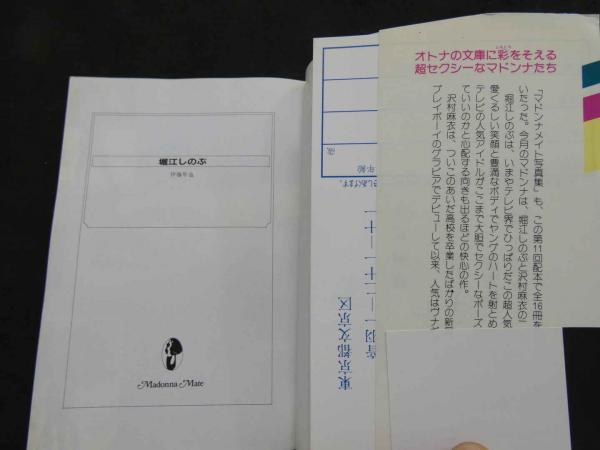 堀江しのぶ
Madonna Mate
オトナの文庫に彩をそえる
超セクシーなマドンナたち
「マドンナメイト写真集」も、この第11回配本で全16冊を
いたった。今月のマドンナは、堀江しのぶと沢村麻衣の二
堀江しのぶは、いまやテレビ界でひっぱりだこの超人気
愛くるしい笑顔と豊満なボディでヤングのハートを射とめ
テレビの人気アイドルがここまで大胆でセクシーなポーズ
ていいのかと心配する向きも出るほどの快心の作。
沢村麻衣は、ついこのあいだ高校を卒業したばかりの新
プレイボーイのグラビアでデビューして以来、人気はウナ
歳
年齢
しあげます。
東京都文京区
音羽一ー二十一ー十一